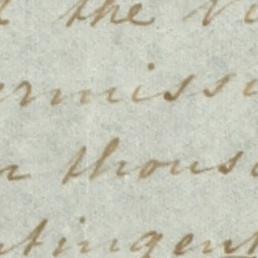 the
ermissi
thous
ntingent